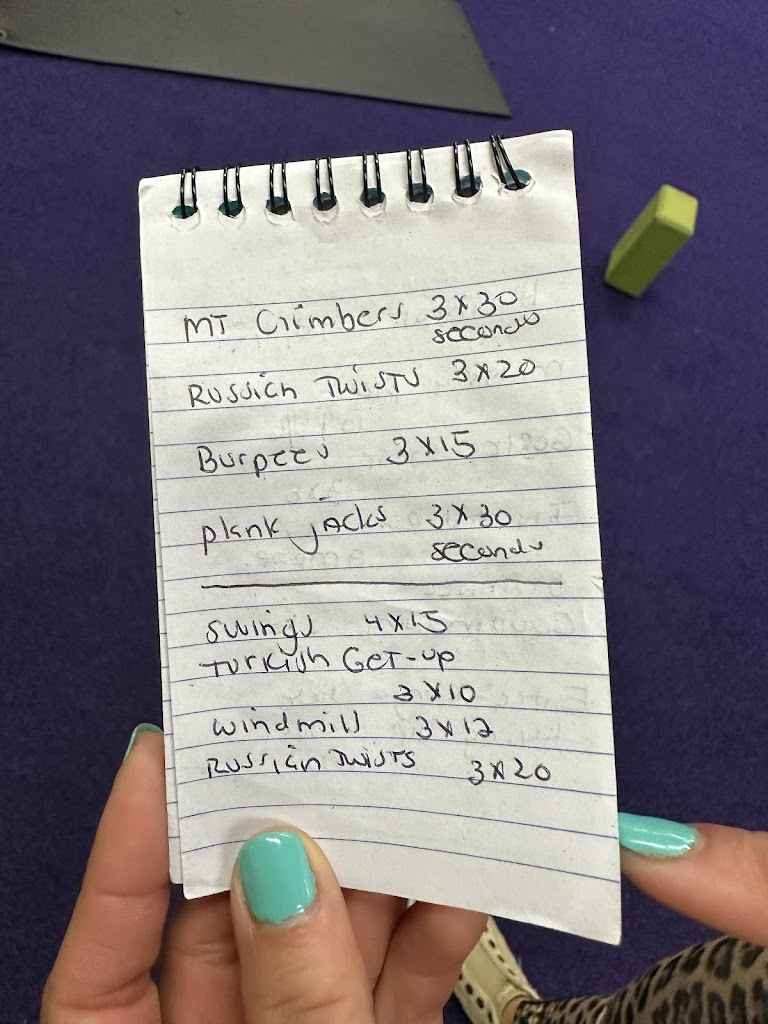 MT Climbers 3x30
seconds
Russian Twists 3x20
Burpees 3x15
plank jacks 3x30
seconds
swings 4x15
Turkish Get-up
3x10
windmill 3x12
Russian Twists 3x20